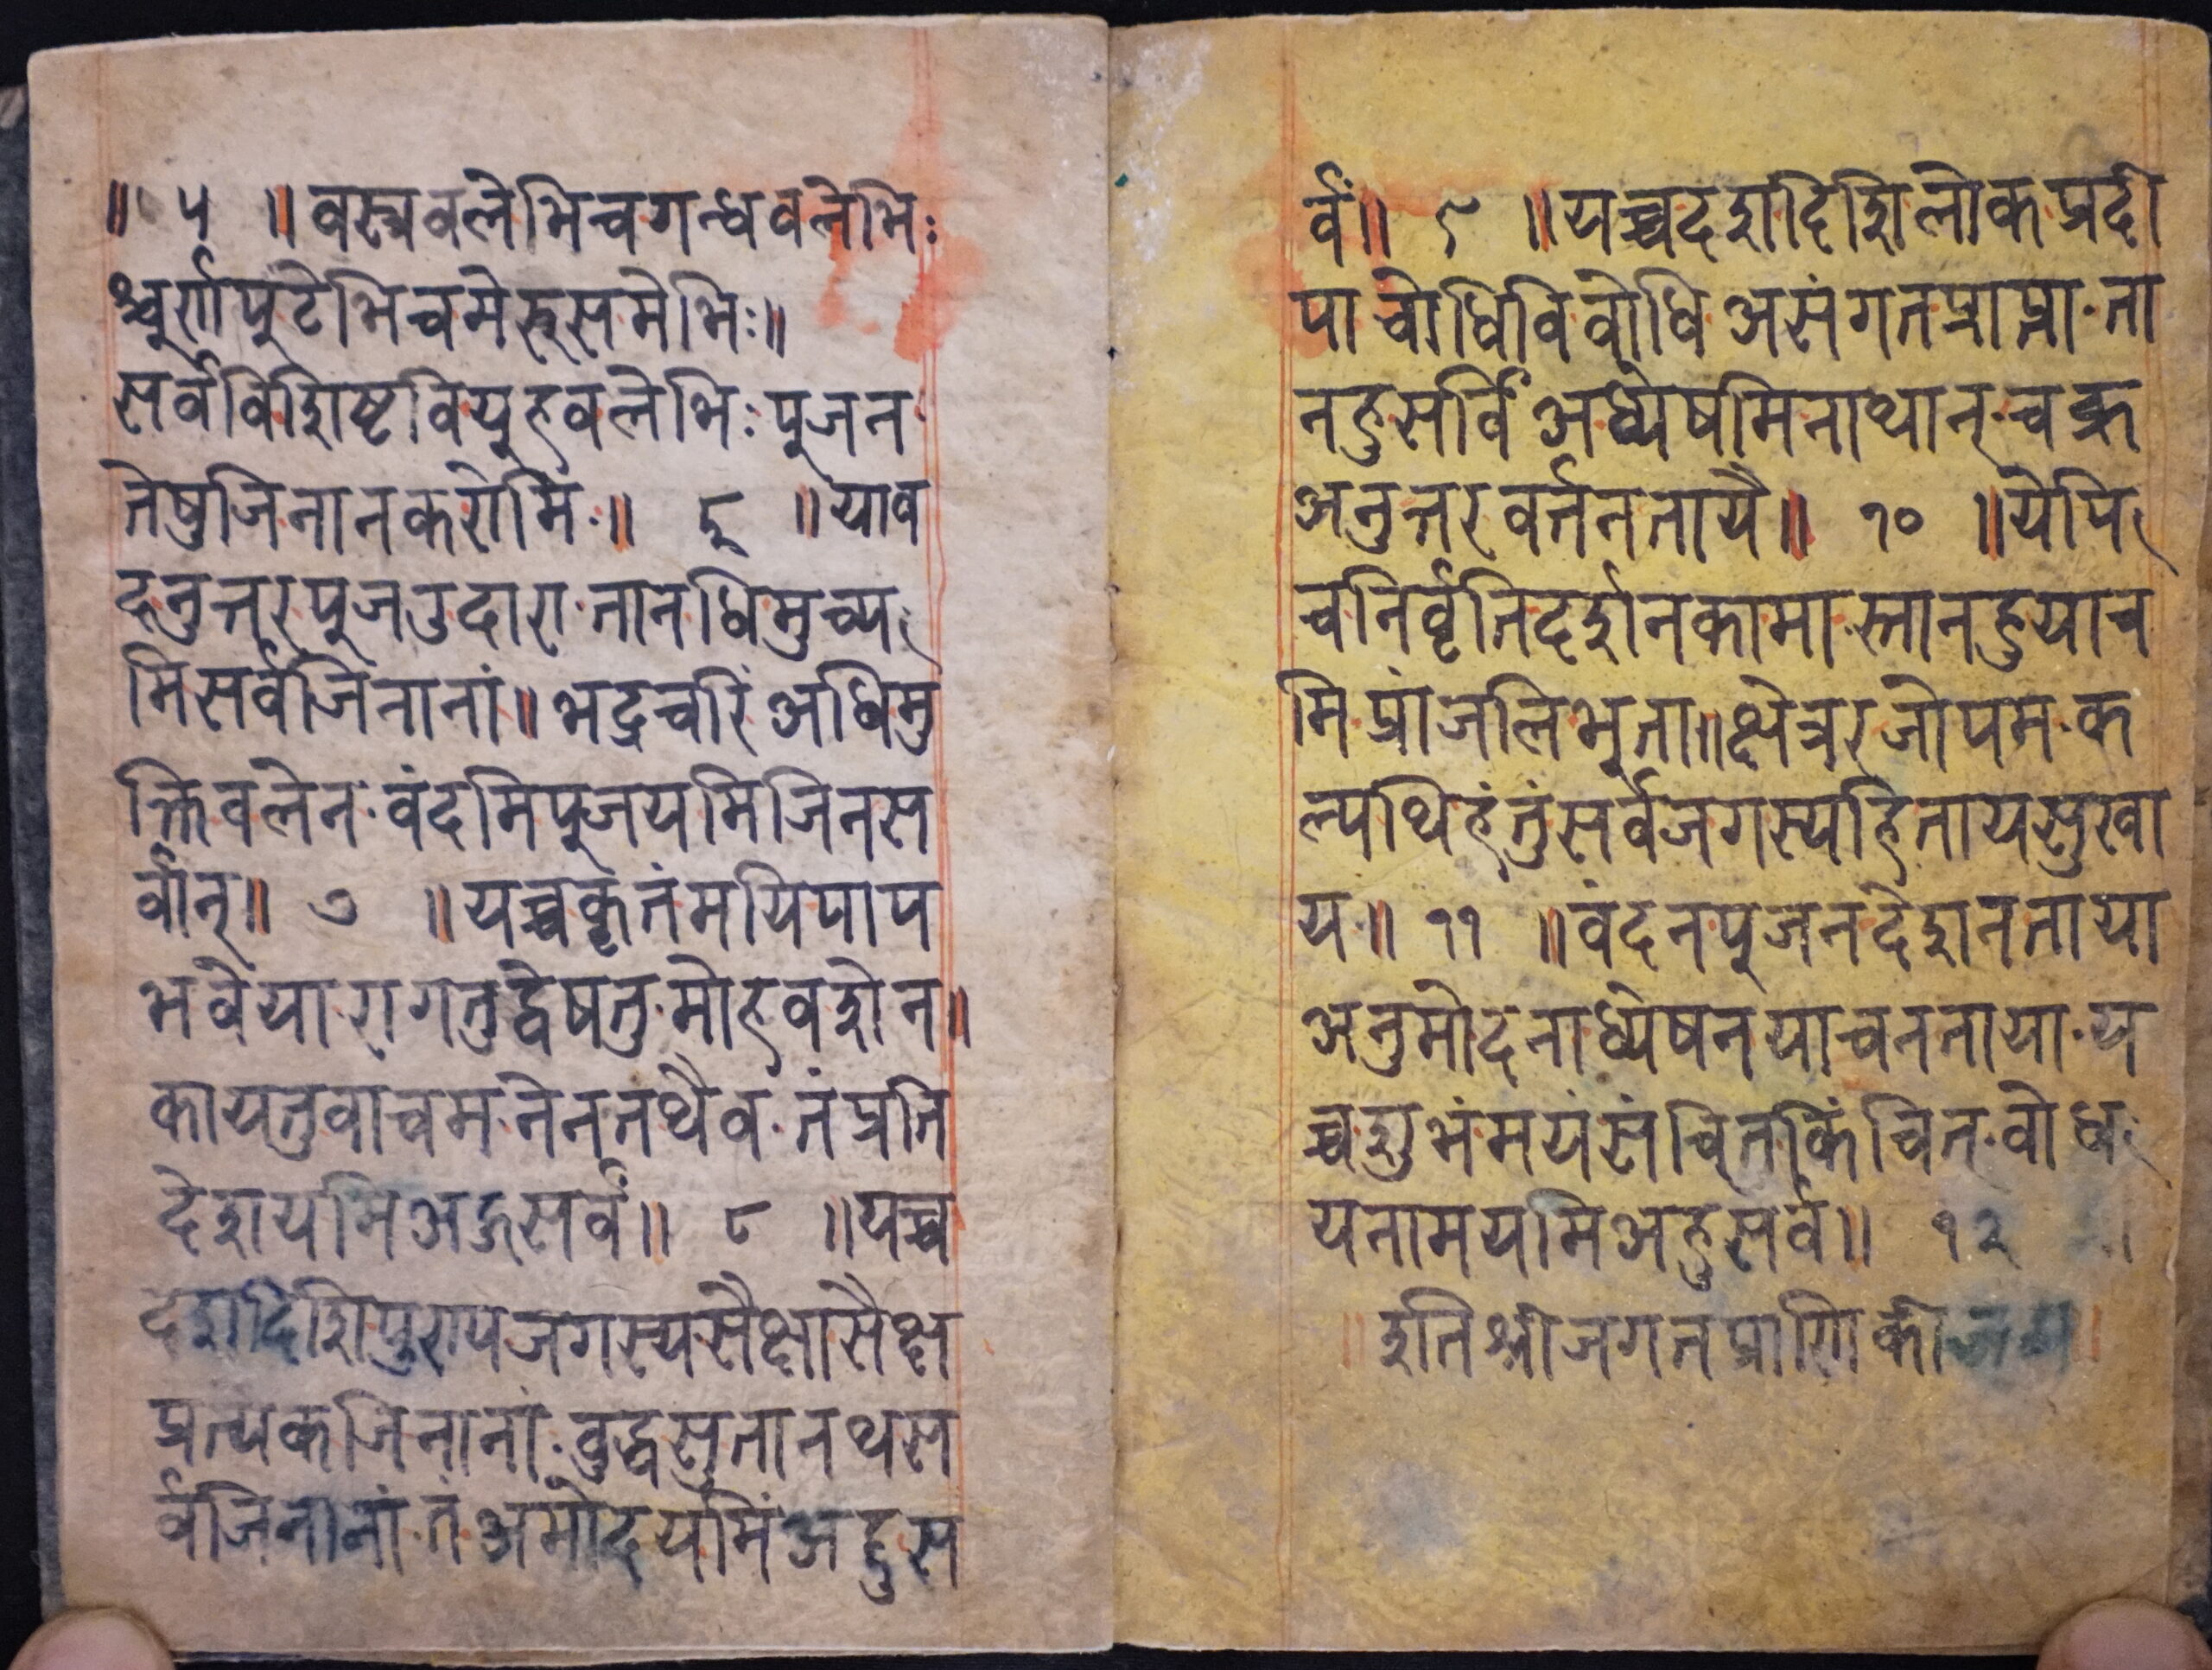 ॥ ५ ॥ वस्त्रवलेभिचगन्धवलेभिः
श्चूर्णपुटेभिचमेरूसमेभिः॥
सर्वविशिष्टवियुहवलेभिः पूजन
तेषुजिनानकरोमि ॥ ६ ॥ याव
दनुत्तरपूजउदारा तानधिमुच्य
मिसर्वजिनानां॥ भद्रचरिं अधिमु
क्तिवलेन वंदमिपूजयमिजिनस
र्वान्॥ ७ ॥ यच्चकृतंमयिपाप
भवेया रागतुद्वेषतु मोहवशेन॥
कायतुवाचम नेनतथैव तंप्रति
देशयमिअहुसर्वं॥ ८ ॥ यच्च
दशदिशिपुण्यजगस्यसैक्षासैक्ष
प्रत्यकजिनानां वुद्धसुतानथस
र्वजिनानां तं अमोदयमिं अहुस
र्वं॥ ९ ॥ यच्चदशदिशिलोकप्रदी
पा वोधिविवोधि असंगतप्राप्ता ता
नहुसर्विं अध्येषमिनाथान् चक्र
अनुत्तरवर्तनतायै॥ १० ॥ येपि
चनिर्वृतिदर्शनकामा स्तानहुयाच
मि प्रांजलिभूता॥ क्षेत्ररजोपम क
ल्पथिहंतुंसर्वजगस्यहितायसुखा
य ॥ ११ ॥ वंदनपूजनदेशनताया
अनुमोदनाध्येषनयाचनताया य
च्चशुभंमयंसंचितकिंचित् वोध
यनामयमिअहुसर्वं॥ १२ ॥
॥ इतिश्रीजगत